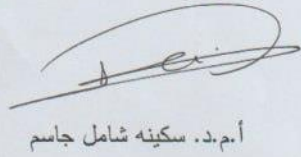 أ.م.د. سكينه شامل جاسم